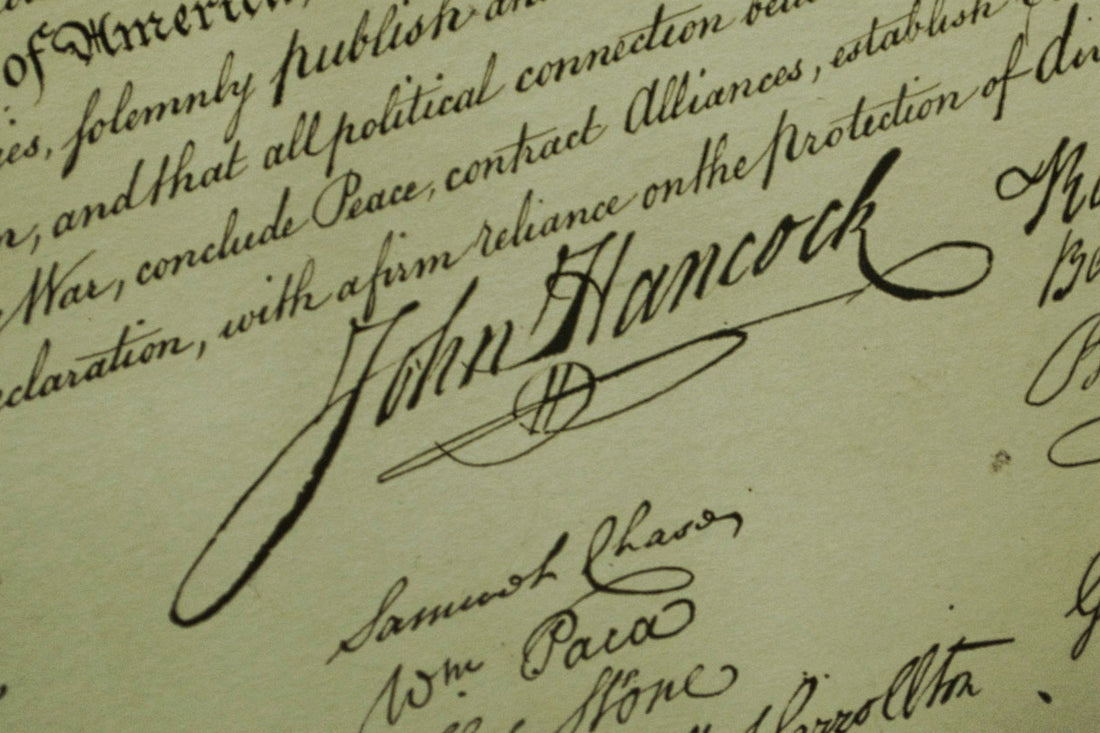 of America,
solemnly publish
, and that all political connection
War, conclude Peace, contract Alliances, establish
, with a firm reliance on the Protection of
John Hancock
Samuel Chase
Wm Paca
Stone
Carrollton